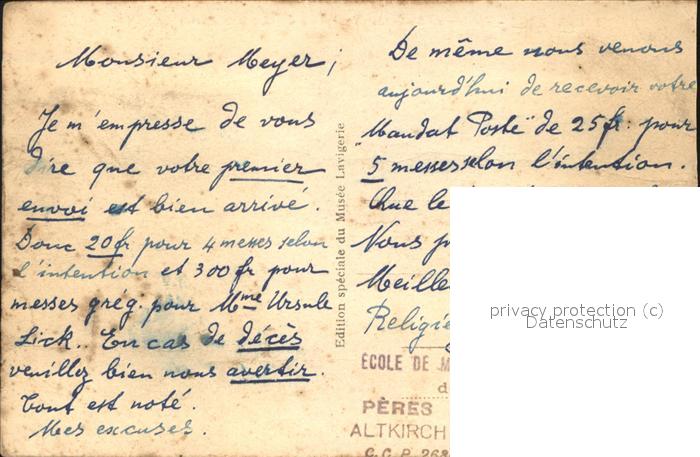 Monsieur Meyer;
Je m'empresse de vous
dire que votre premier
envoi est bien arrivé.
Donc 20fr pour 4 messes selon
l'intention et 300 fr pour
messes grég. pour Mme Ursule
Lick. En cas de décès
veuillez bien nous avertir.
Tout est noté.
Mes excuses.
Edition spéciale du Musée Lavigerie
De même nous venons
aujourd'hui de recevoir votre
"Mandat Poste" de 25 fr. pour
5 messes selon l'intention.
Que le
Nous
Religie
ÉCOLE DE M
d
PÈRES
ALTKIRCH
C.C.P. 268
privacy protection (c)
Datenschutz